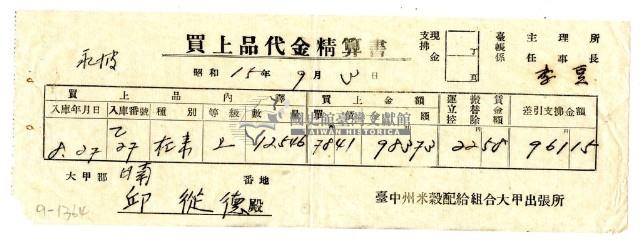 買上品代金精算書
現金支拂
丁
頁
臺帳係
主任
理事
所長
昭和 15 年 9 月 日
李
買上品內譯
買上金額
運搬賃立替金控除
差引支拂金額
入庫年月日 入庫番號 種別 等級 數量 單價 金額
8.27 27 在來 上 42546 7841 98373 2258 96115
國史館臺灣文獻館
TAIWAN HISTORICA
大甲郡 番地
邱 從 德 殿
臺中州米穀配給組合大甲出張所
9-1364